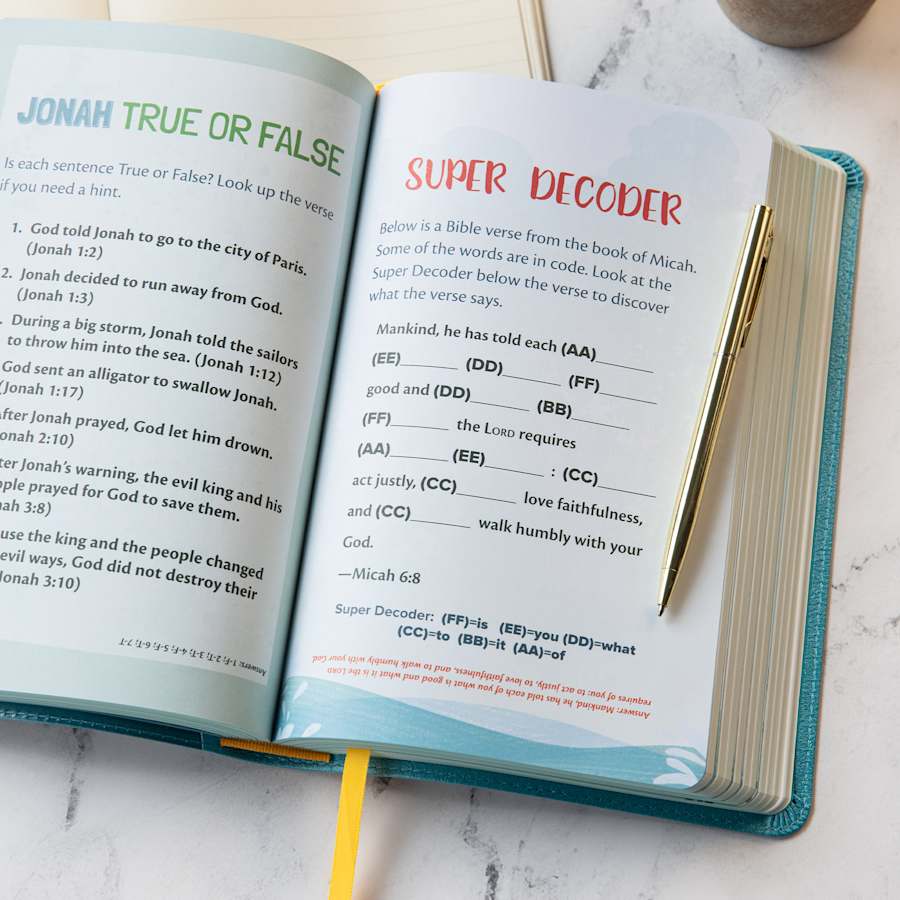 JONAH TRUE OR FALSE
Is each sentence True or False? Look up the verse
if you need a hint.
1. God told Jonah to go to the city of Paris.
(Jonah 1:2)
2. Jonah decided to run away from God.
(Jonah 1:3)
. During a big storm, Jonah told the sailors
to throw him into the sea. (Jonah 1:12)
God sent an alligator to swallow Jonah.
(Jonah 1:17)
After Jonah prayed, God let him drown.
onah 2:10)
ter Jonah's warning, the evil king and his
ople prayed for God to save them.
nah 3:8)
use the king and the people changed
evil ways, God did not destroy their
Jonah 3:10)
Answers: 1-F; 2-T; 3-T; 4-F; 5-F; 6-T; 7-T
SUPER DECODER
Below is a Bible verse from the book of Micah.
Some of the words are in code. Look at the
Super Decoder below the verse to discover
what the verse says.
Mankind, he has told each (AA)______
(EE)______ (DD)______ (FF)______
good and (DD)______ (BB)______
(FF)______ the LORD requires
(AA)______ (EE)______ : (CC)______
act justly, (CC)______ love faithfulness,
and (CC)______ walk humbly with your
God.
—Micah 6:8
Super Decoder: (FF)=is (EE)=you (DD)=what
(CC)=to (BB)=it (AA)=of
Answer: Mankind, he has told each of you what is good and what it is the LORD
requires of you: to act justly, to love faithfulness, and to walk humbly with your God.